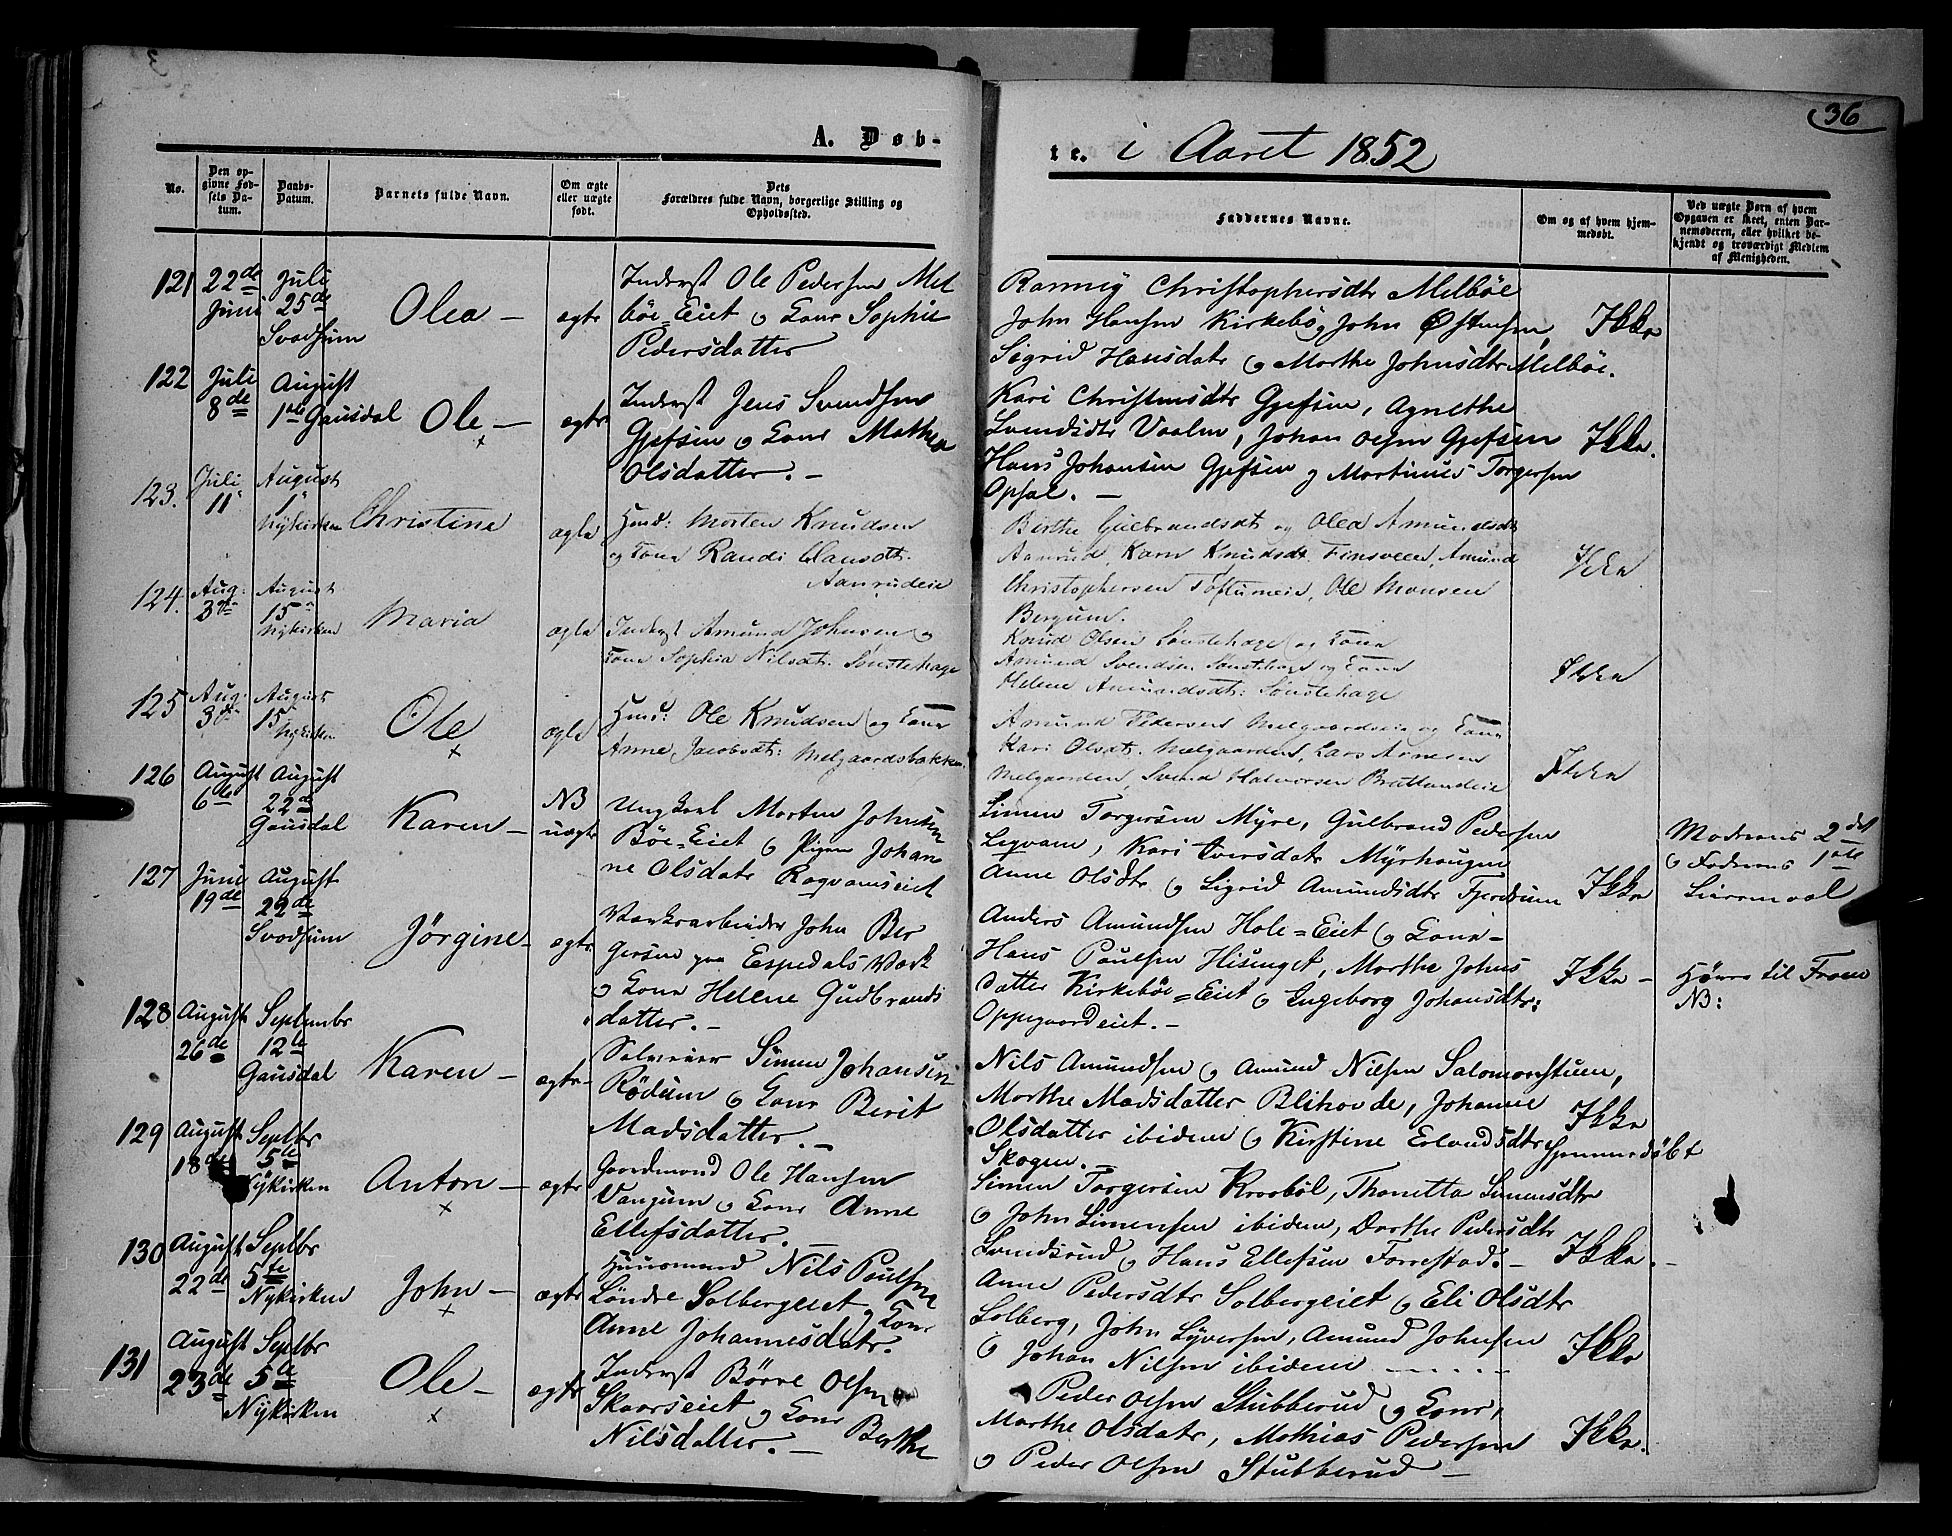 36
A. Døb-
te. i Aaret 1852
No.
Den op-
givne Fød-
sels Da-
tum.
Daabs-
Datum.
Barnets fulde Navn.
Om ægte
eller uægte
født.
Dets
Forældres fulde Navn, borgerlige Stilling og
Opholdssted.
Faddernes Navne.
Om og af hvem hjem-
medøbt.
Ved uægte Børn af hvem
Opgaven er skeet, enten Bar-
nemoderen, eller hvilket be-
kjendt og troværdigt Medlem
af Menigheden.
121
22de
Juni
Juli
25de
Svadsum
Olea –
ægte
Inderst Ole Pedersen Mel
böe-Eiet og Kone Sophie
Pedersdatter
Rannig Christophersdtr Melböe
John Hansen Kirkebö, John Østensen,
Sigrid Hansdatr og Marthe Johnsdtr Melböe.
Ikke
122
Juli
8de
August
1ste Gausdal
Ole –
ægte
Inderst Jens Svendsen
Gjefsen og Kone Mathea
Olsdatter. –
Kari Christensdtr Gjefsen, Agnethe
Svendsdtr Vaalen, Johan Olsen Gjefsen
Hans Johansen Gjefsen og Martinus Torgersen
Opsal. –
Ikke.
123.
Juli
11"
August
1"
Nykirken
Christine
ægte
Husd: Morten Knudsen
og Kone Randi Clausdt:
Aanrudeie
Birthe Gulbrandsdt og Olea Amundsdt
Aamrud, Karn Knudsdt Finsveen, Amund
Christophersen Toftumeie, Ole Monsen
Bergum.
Ikke
124.
Aug:
3die
August
15"
Nykirken
Maria
ægte
Inderst Amund Johnsen og
Kone Sophia Nilsdt: Sönstehage
Knud Olsen Sönstehage og Kone
Amund Svendsen Sönstehage og Kone
Helene Amundsdt: Sönstehage
Ikke
125
Aug:
3die
August
15"
Nykirken
Ole
ægte
Husd: Ole Knudsen og Kone
Anne Jacobsdt: Melgaardsbakken.
Amund Pedersen Melgaardseie og Kone
Kari Olsdt. Melgaarden, Lars Arnesen
Melgaarden, Svend Halvorsen Brattlandeie
Ikke
126
August
6te
August
22de
Gausdal
Karen –
NB
uægte
Ungkarl Morten Johnsen
Böe-Eiet og Pigen Johan
ne Olsdatr Ragvamseiet
Simen Torgersen Myre, Gulbrand Pedersen
Legvam, Kari Iversdatr Myrhaugen
Anne Olsdtr og Sigrid Amundsdtr Fjerdsum
Ikke
Moderens 2det
og Faderens 1ste
Leiermaal
127
Juni
19de
August
22de
Svadsum
Jörgine –
ægte
Værksarbeider John Ber
gersen paa Espedals Værk
og Kone Helene Gudbrands
datter. –
Anders Amundsen Hole-Eiet og Kone –
Hans Paulsen Hisinget, Marthe Johns
datter Kirkeböe-Eiet og Engeborg Johansdtr:
Oppegaardeiet. –
Ikke –
Hörer til Fron
NB:
128
August
26de
Septembr
12te
Gausdal
Karen –
ægte –
Selveier Simen Johansen
Rödum og Kone Berit
Madsdatter. –
Nils Amundsen og Amund Nilsen Salomonstuen,
Marthe Madsdatter Blihovde, Johanne
Olsdatter ibidem og Kirstine Erlandsdtr
Skogen. –
Ikke
Hjemmedöbt
129
August
18de
Septbr
5te
Nykirken
Anton –
ægte
Gaardmand Ole Hansen
Vangum og Kone Anne
Ellefsdatter. –
Simen Torgersen Kroeböl, Thonetta Simensdtr
og John Simensen ibidem, Dorthe Pedersdtr
Svendsrud og Hans Ellefsen Forrestad. –
Ikke. –
130
August
22de
Septbr
5te
Nykirken
John –
ægte
Huusmand Nils Paulsen
Söndre Solbergeiet og Kone
Anne Johannesdatr.
Anne Pedersdtr Solbergeiet og Eli Olsdtr
Solberg, John Syversen, Amund Johnsen
og Johan Nilsen ibidem
Ikke
131
August
23de
Septbr
5te
Nykirken
Ole –
ægte
Inderst Börre Olsen
Skaarseiet og Kone Berthe
Nilsdatter. –
Peder Olsen Stubberud og Kone,
Marthe Olsdatr, Mathias Pedersen
og Peder Olsen Stubberud –
Ikke.